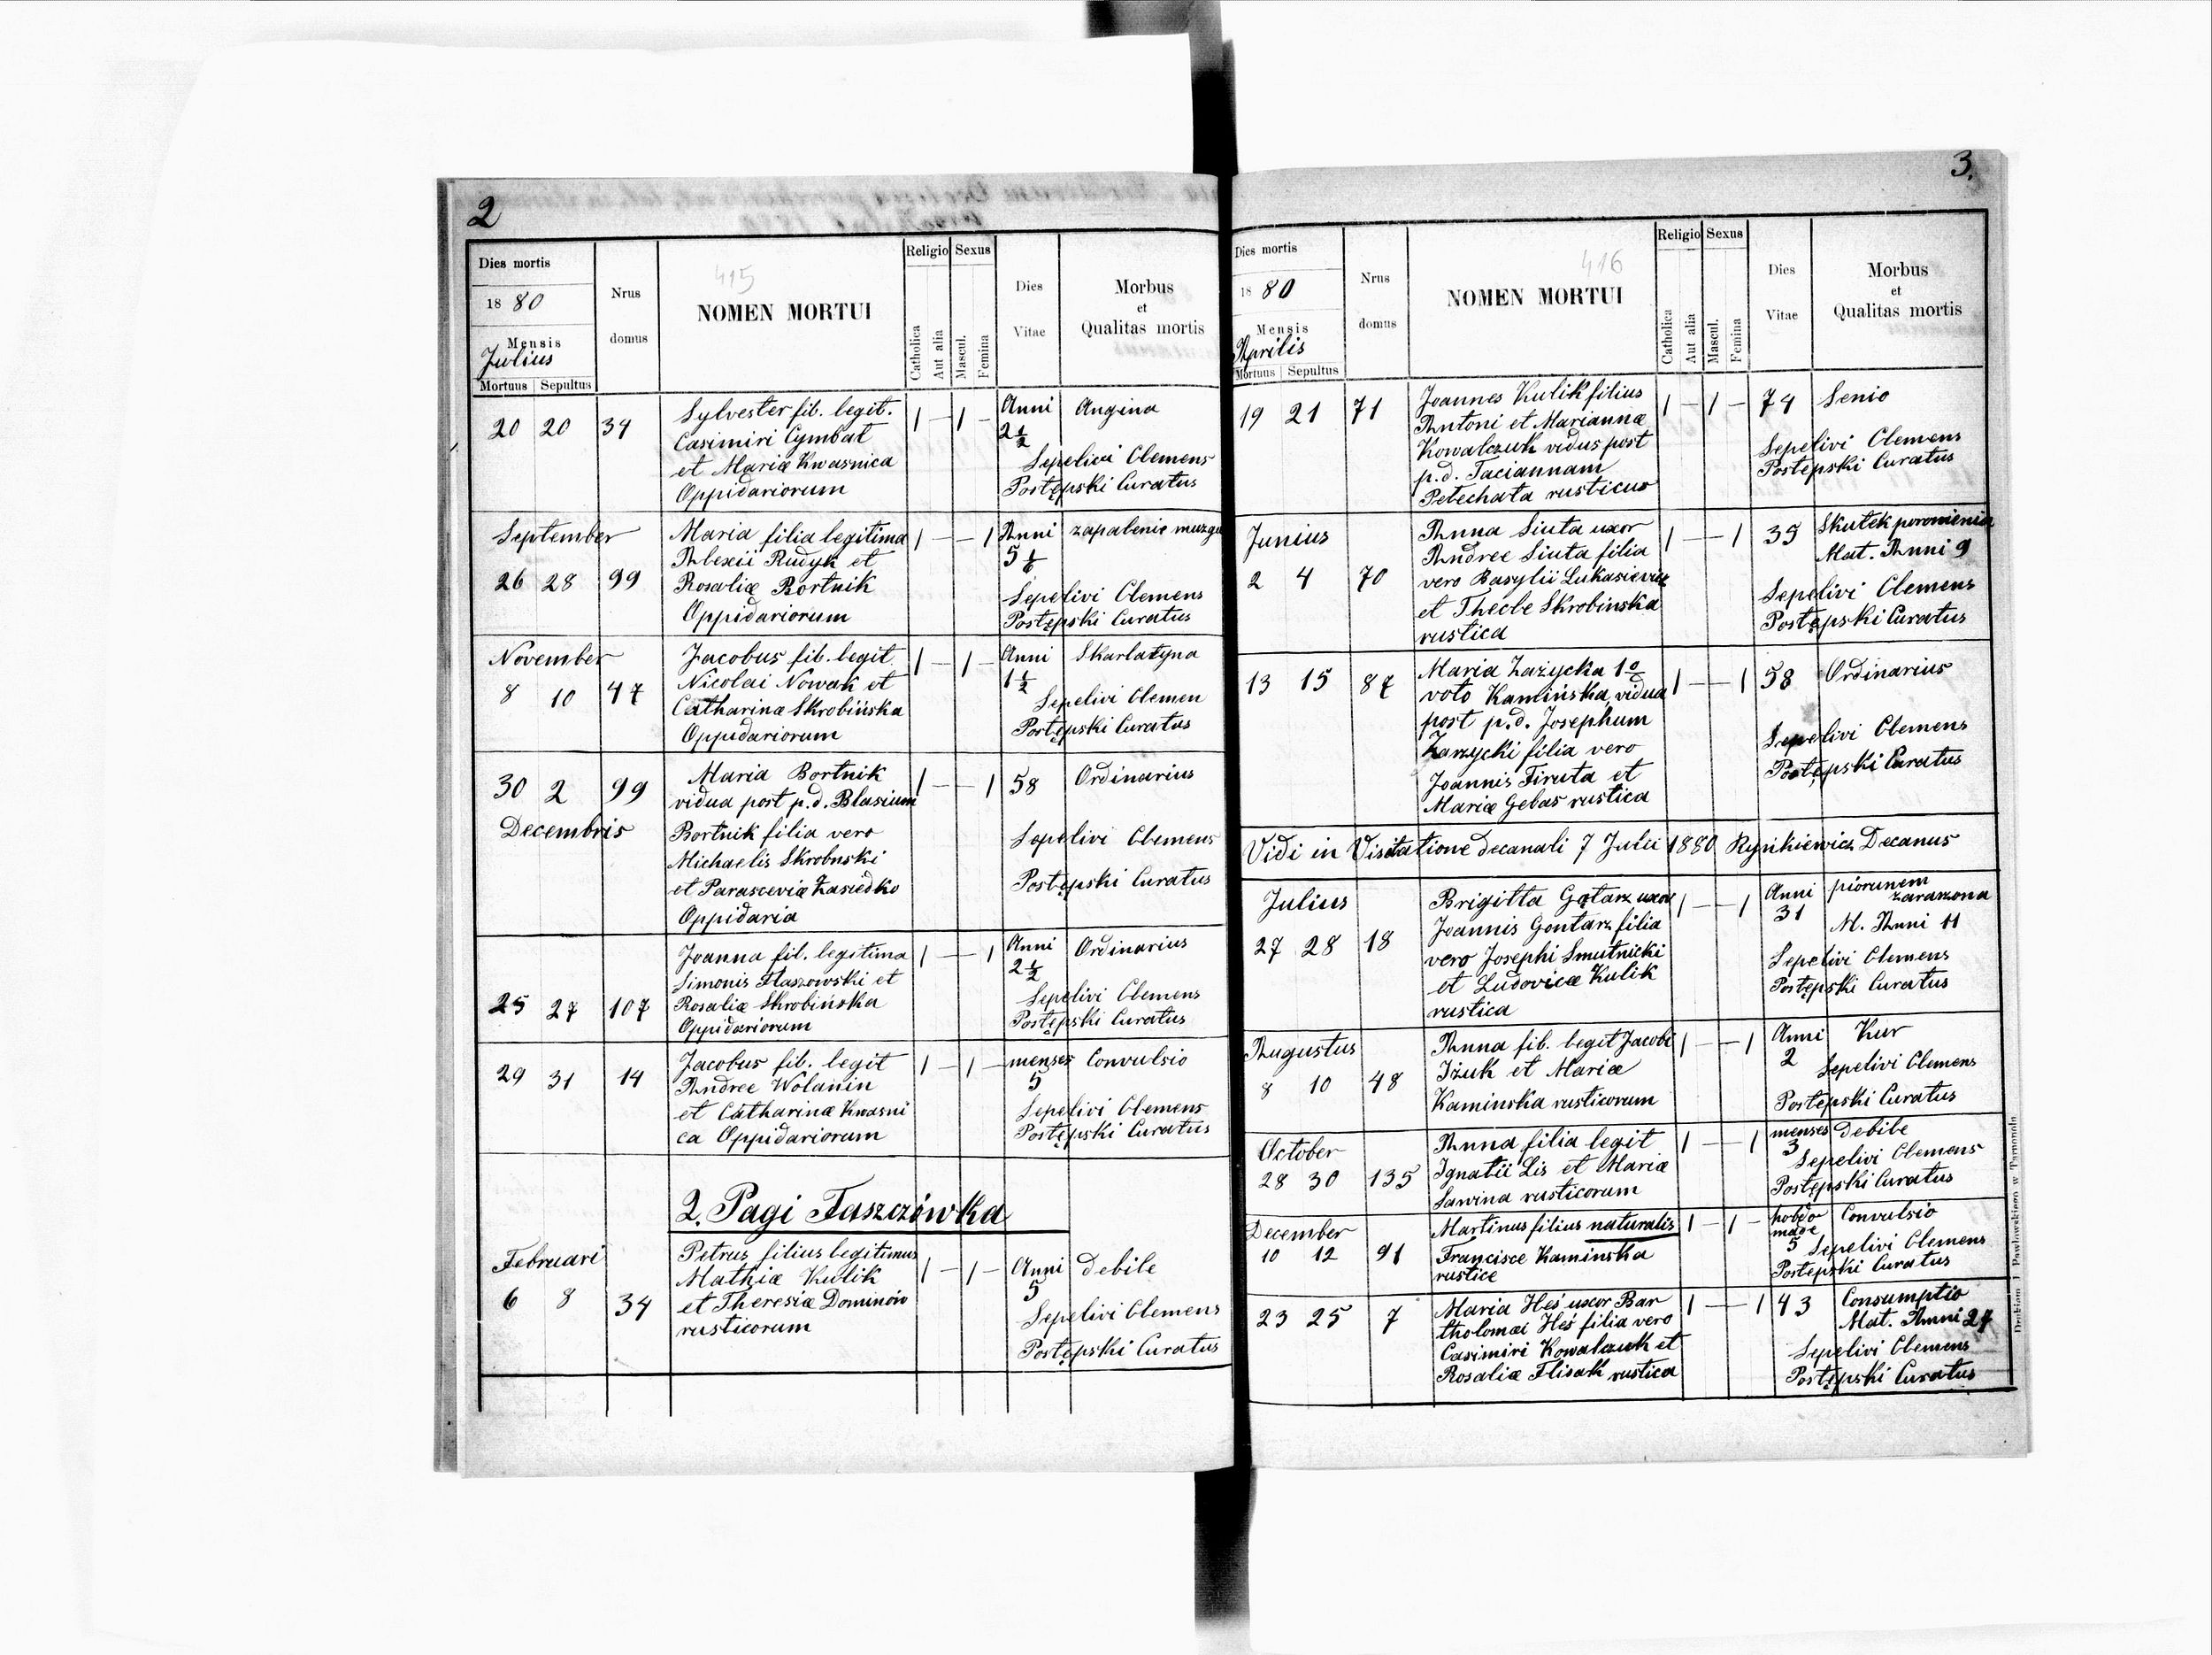 2
Dies mortis
1880
Mensis
Julius
Mortuus Sepultus
Nrus
domus
415
NOMEN MORTUI
Religio Sexus
Catholica
Aut alia
Mascul.
Femina
Dies
Vitae
Morbus
et
Qualitas mortis
20 20 34 Sylvester fil. legit. 1 — 1 — Anni Angina
Casimiri Cymbat 2 1/2
et Mariæ Kwasnica Sepelivi Clemens
Oppidariorum Postępski Curatus
September Maria filia legitima 1 — — 1 Anni zapalenie muzgu
Alexii Rudyk et 5 1/6
26 28 99 Rosaliæ Bortnik Sepelivi Clemens
Oppidariorum Postępski Curatus
November Jacobus fil. legit 1 — 1 — Anni Skarlatyna
8 10 47 Nicolai Nowak et 1 1/2
Catharinæ Skrobińska Sepelivi Clemen
Oppidariorum Postępski Curatus
30 2 99 Maria Bortnik 1 — — 1 58 Ordinarius
vidua post p.d. Blasium
Decembris Bortnik filia vero Sepelivi Clemens
Michaelis Skrobnski
et Parasceviæ Zasiedko Postępski Curatus
Oppidaria
Joanna fil. legitima 1 — — 1 Anni Ordinarius
Simonis Staszowski et 2 1/2
25 27 107 Rosaliæ Skrobińska Sepelivi Clemens
Oppidariorum Postępski Curatus
29 31 14 Jacobus fil. legit 1 — 1 — menses Convulsio
Andree Wolanin 5
et Catharinæ Kwasni Sepelivi Clemens
ca Oppidariorum Postępski Curatus
2. Pagi Taszczówka
Februari Petrus filius legitimus 1 — 1 — Anni debile
Mathiæ Kulik 5
6 8 34 et Theresiæ Dominów Sepelivi Clemens
rusticorum Postępski Curatus
3.
Dies mortis
1880
Mensis
Aprilis
Mortuus Sepultus
Nrus
domus
416
NOMEN MORTUI
Religio Sexus
Catholica
Aut alia
Mascul.
Femina
Dies
Vitae
Morbus
et
Qualitas mortis
19 21 71 Joannes Kulik filius 1 — 1 — 74 Senio
Antoni et Mariannæ
Kowalczuk vidus post Sepelivi Clemens
p.d. Taciannam Postępski Curatus
Petechata rusticus
Junius Anna Siuta uxor 1 — — 1 35 Skutek poronienia
Andree Siuta filia Mat. Anni 9
2 4 70 vero Basylii Lukasiewicz Sepelivi Clemens
et Thecle Skrobinska Postępski Curatus
rustica
13 15 87 Maria Zazycka 1o 1 — — 1 58 Ordinarius
voto Kamińska, vidua
post p.d. Josephum Sepelivi Clemens
Zarzycki filia vero Postępski Curatus
Joannis Firuta et
Mariæ Gebas rustica
Vidi in Visitatione decanali 7 Julii 1880 Rynkiewicz Decanus
Julius Brigitta Gotarz uxor 1 — — 1 Anni piorunem
Joannis Gontarz filia 31 zarazona
27 28 18 vero Josephi Smutnicki M. Anni 11
et Ludovicæ Kulik Sepelivi Clemens
rustica Postępski Curatus
Augustus Anna fil. legit Jacobi 1 — — 1 Anni Kur
8 10 48 Iżuk et Mariæ 2 Sepelivi Clemens
Kaminska rusticorum Postępski Curatus
October Anna filia legit 1 — — 1 menses debile
28 30 135 Ignatii Lis et Mariæ 3 Sepelivi Clemens
Sawina rusticorum Postępski Curatus
December Martinus filius naturalis 1 — 1 — hobdo Convulsio
10 12 91 Francisce Kaminska made
rustice 5 Sepelivi Clemens
Postępski Curatus
23 25 7 Maria Heś uxor Bar 1 — — 1 43 Consumptio
tholomæi Heś filia vero Mat. Anni 27
Casimiri Kowalczuk et Sepelivi Clemens
Rosaliæ Flisak rustica Postępski Curatus
Drukiem J. Pawłowskiego w Tarnopolu